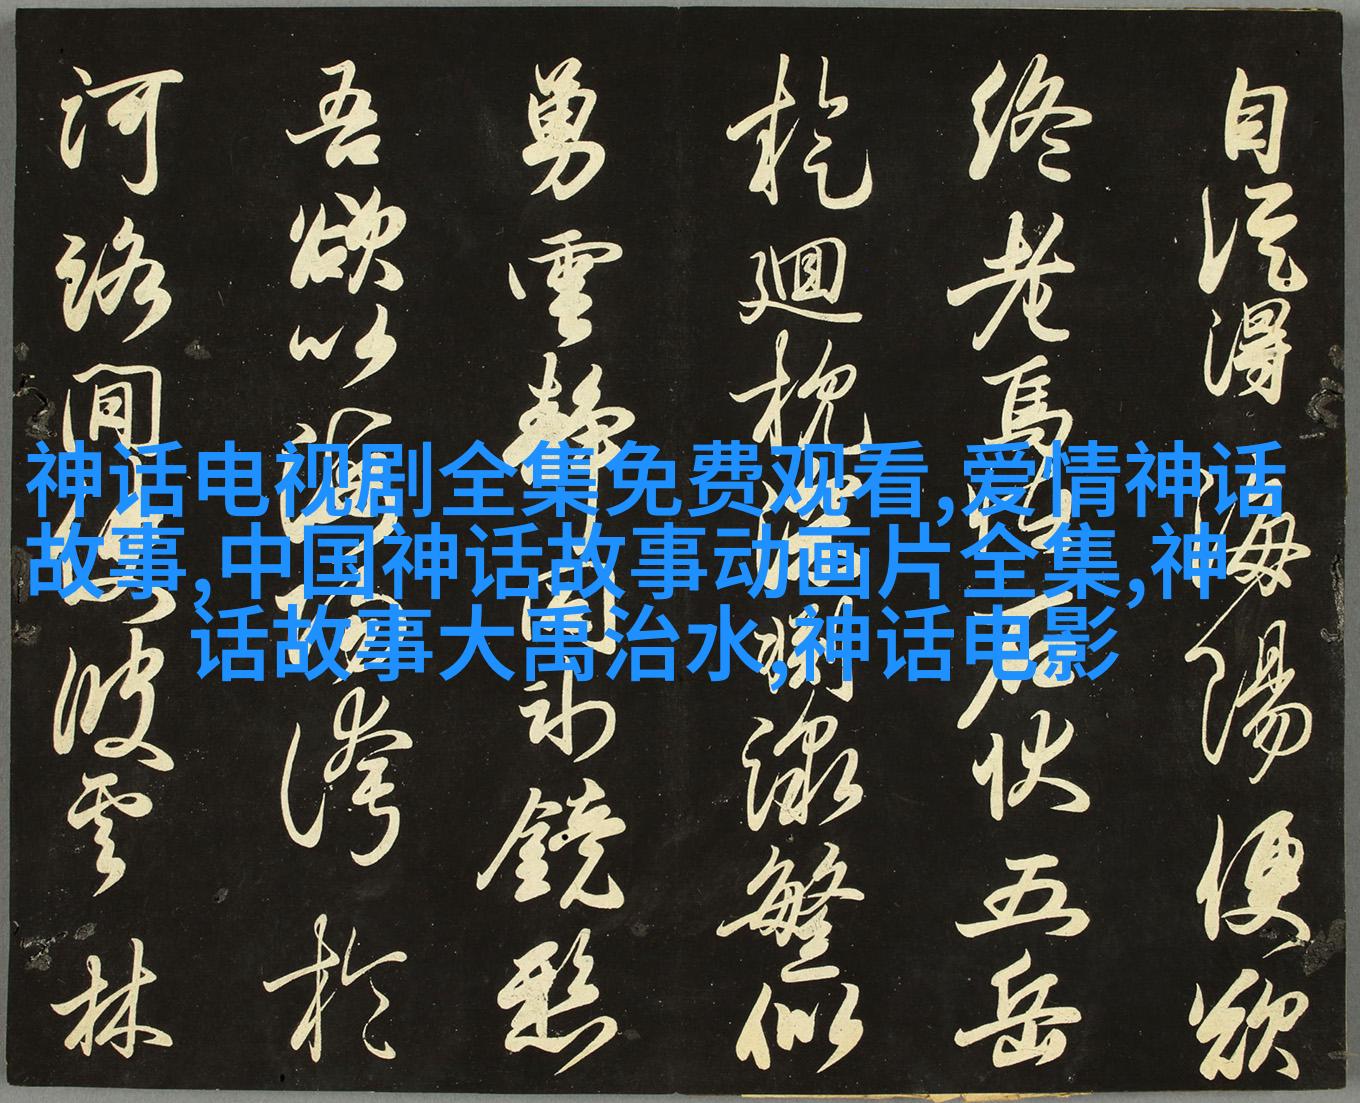 神话电视剧全集免费观看,爱情神话
故事,中国神话故事动画片全集,神
话故事大禹治水,神话电影
自從得海陽便欲
終老焉石伏五岳
迴枕渌繁似
雲静鏡愁
吾欲以誇於
河洛間波雲林